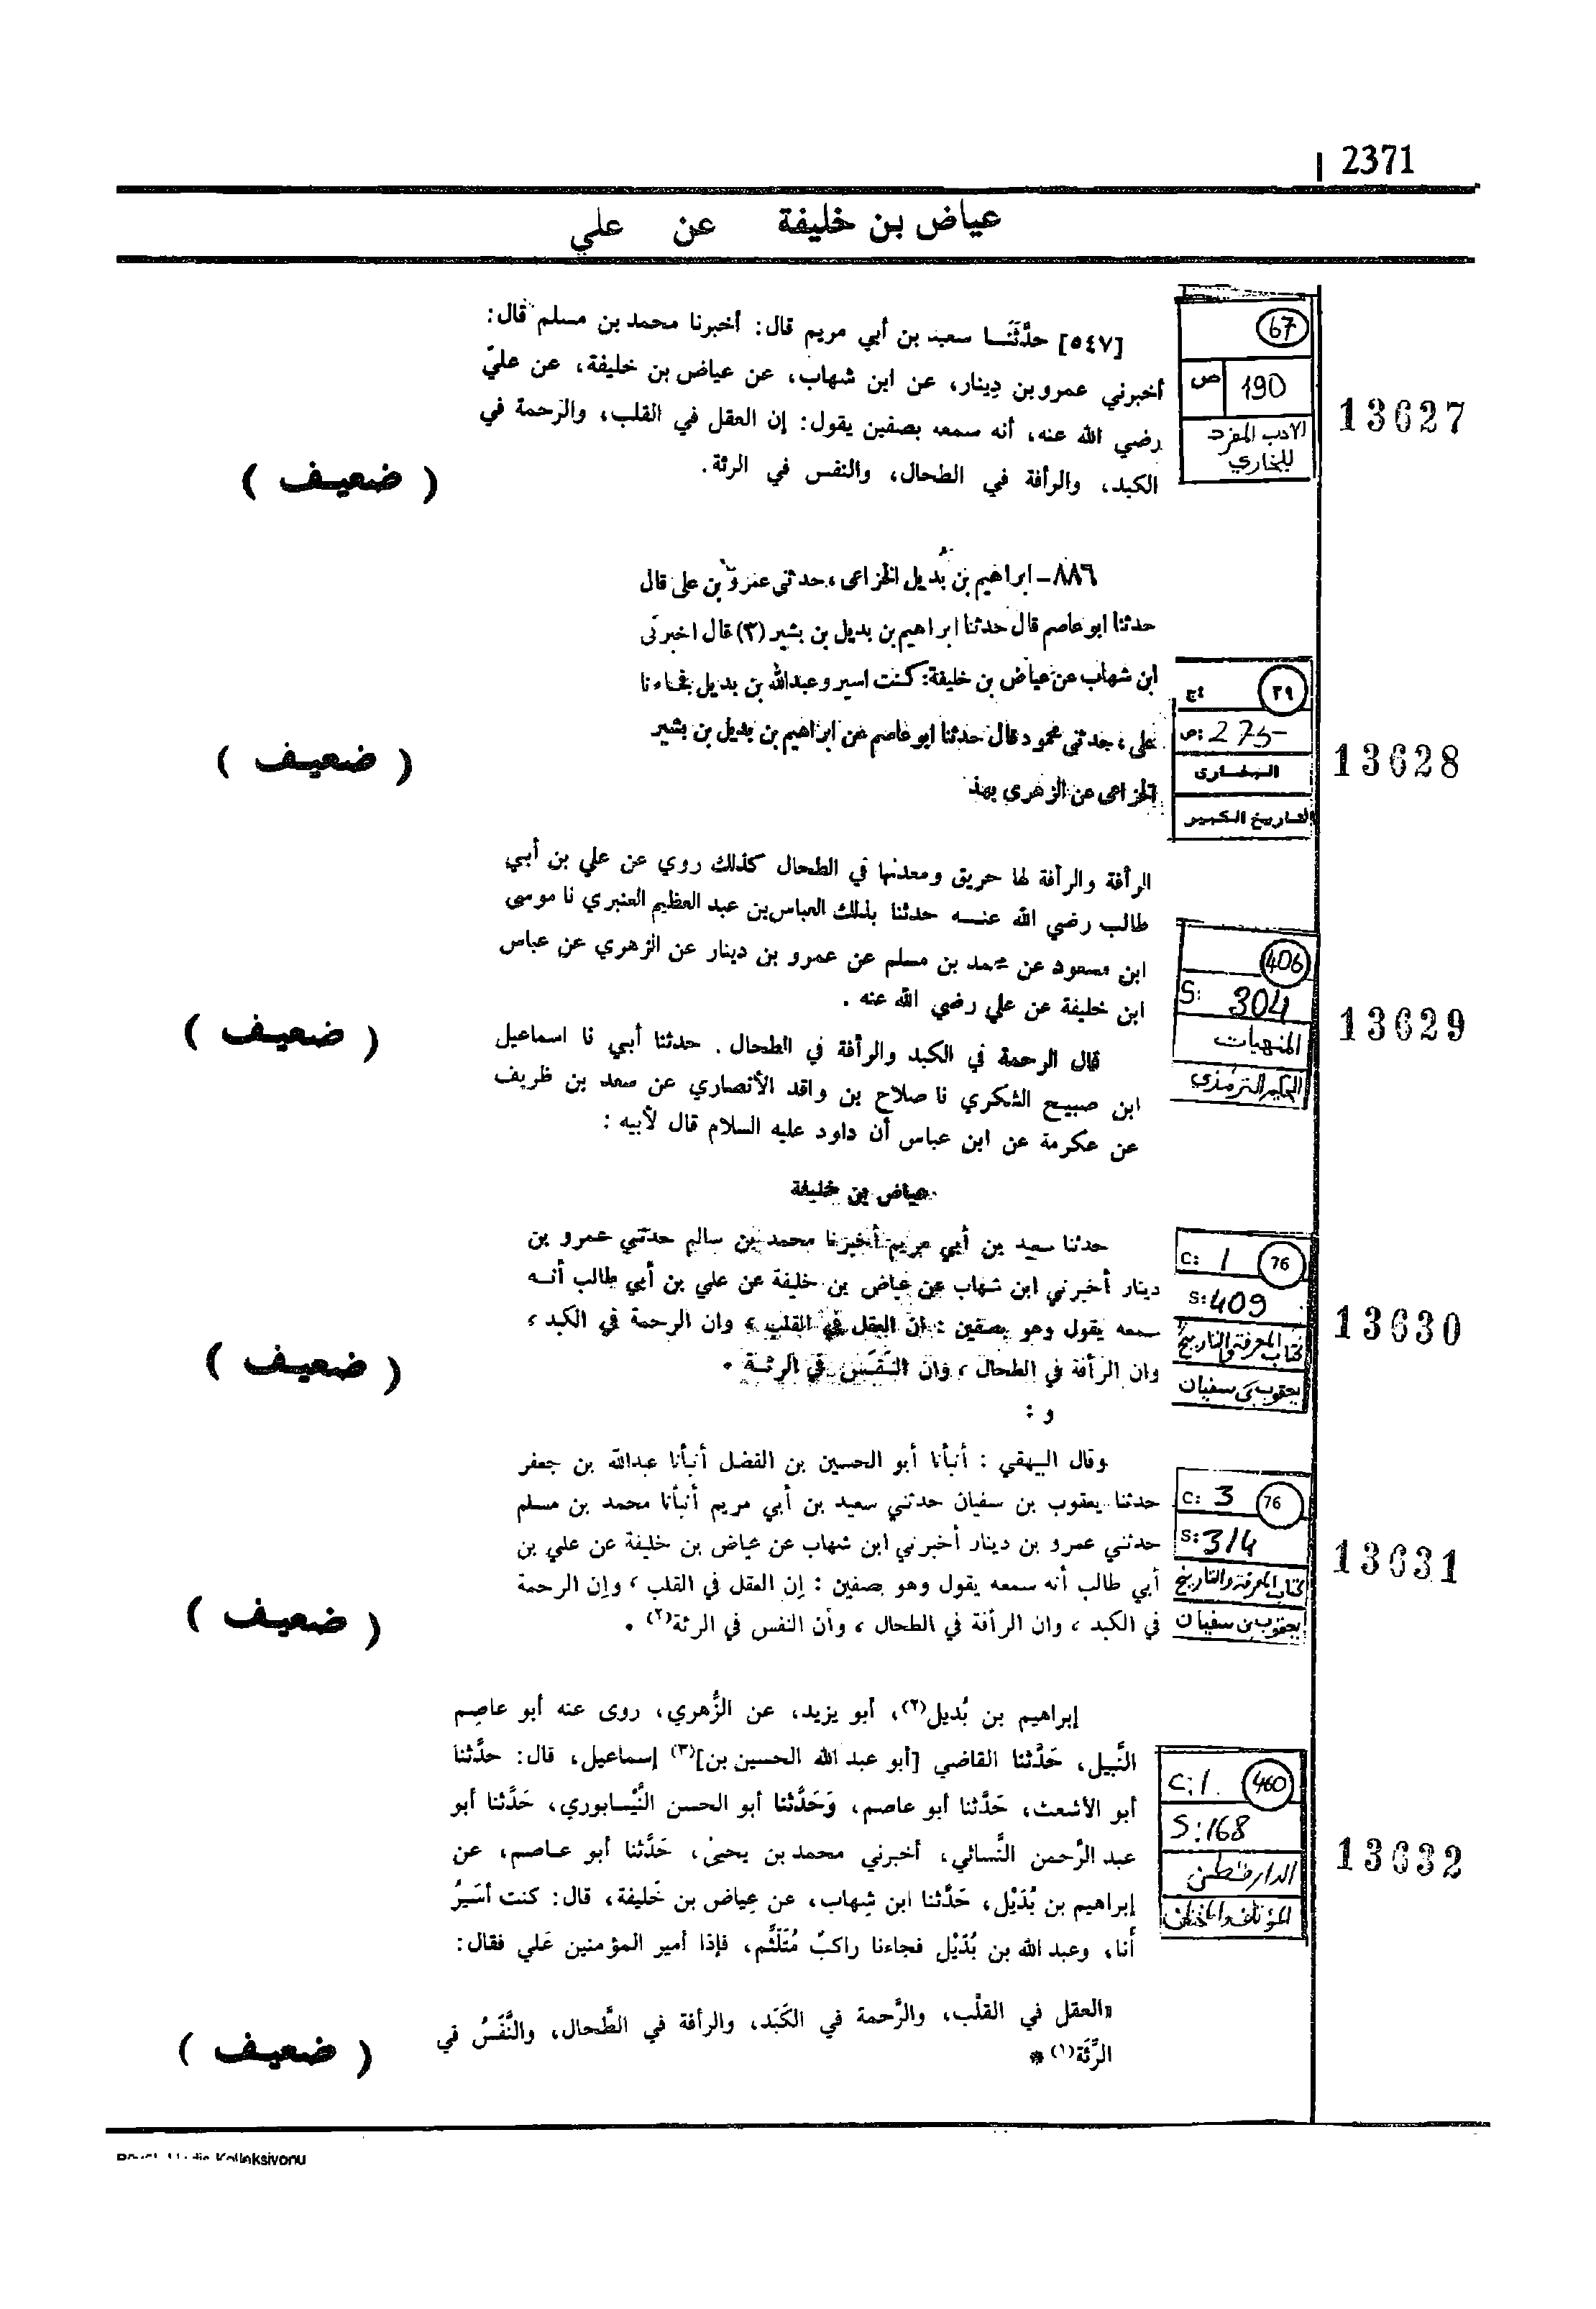 2371
عياض بن خليفة عن علي
67
ص 190
الادب المفرد
للبخاري
13627
[٥٤٧] حدَّثَنَا سعيد بن أبي مريم قال: أخبرنا محمد بن مسلم قال:
أخبرني عمرو بن دِينار، عن ابن شهاب، عن عياض بن خليفة، عن عليّ
رضي الله عنه، أنه سمعه بصفين يقول: إن العقل في القلب، والرحمة في
الكبد، والرأفة في الطحال، والنفس في الرئة.
( ضعيف )
٨٨٦ - ابراهيم بن بُديل الخزاعى، حدثنى عمرو بن على قال
حدثنا ابو عاصم قال حدثنا ابراهيم بن بديل بن بشير (٣) قال اخبرنى
ابن شهاب عن عياض بن خليفة: كنت اسير وعبدالله بن بديل فجاءنا
على، حدثنى محمود قال حدثنا ابو عاصم عن ابراهيم بن بديل بن بشير
الخزاعى عن الزهرى بهذ
٢٩
ج:
ص: 275
البخارى
التاريخ الكبير
13628
( ضعيف )
الرأفة والرأفة لها حريق ومعدنها في الطحال كذلك روي عن علي بن أبي
طالب رضي الله عنه حدثنا بذلك العباس بن عبد العظيم العنبري نا موسى
ابن مسعود عن محمد بن مسلم عن عمرو بن دينار عن الزهري عن عباس
ابن خليفة عن علي رضي الله عنه .
قال الرحمة في الكبد والرأفة في الطحال . حدثنا أبي نا اسماعيل
ابن صبيح الشكري نا صلاح بن واقد الأنصاري عن سعد بن ظريف
عن عكرمة عن ابن عباس أن داود عليه السلام قال لأبيه :
406
S: 304
المنهيات
الحكيم الترمذي
13629
( ضعيف )
عياض بن خليفة
حدثنا سعيد بن أبي مريم أخبرنا محمد بن سالم حدثني عمرو بن
دينار أخبرني ابن شهاب عن عياض بن خليفة عن علي بن أبي طالب أنه
سمعه يقول وهو بصفين : ان العقل في القلب ، وان الرحمة في الكبد ،
وان الرأفة في الطحال ، وان النَّفَس في الرئة .
و :
C: 1 76
S: 409
كتاب المعرفة والتاريخ
يعقوب بن سفيان
13630
( ضعيف )
وقال البيهقي : أنبأنا أبو الحسين بن الفضل أنبأنا عبدالله بن جعفر
حدثنا يعقوب بن سفيان حدثني سعيد بن أبي مريم أنبأنا محمد بن مسلم
حدثني عمرو بن دينار أخبرني ابن شهاب عن عياض بن خليفة عن علي بن
أبي طالب أنه سمعه يقول وهو بصفين : إن العقل في القلب ، وإن الرحمة
في الكبد ، وان الرأفة في الطحال ، وأن النفس في الرئة(٢) .
C: 3 76
S: 314
كتاب المعرفة والتاريخ
يعقوب بن سفيان
13631
( ضعيف )
إبراهيم بن بُديل(٢)، أبو يزيد، عن الزُّهري، روى عنه أبو عاصِم
النَّبيل، حَدَّثنا القاضي [أبو عبد الله الحسين بن](٣) إسماعيل، قال: حدَّثنا
أبو الأشعث، حَدَّثنا أبو عاصم، وَحَدَّثنا أبو الحسن النَّيْسابوري، حَدَّثنا أبو
عبد الرَّحمن النَّسائي، أخبرني محمد بن يحيىٰ، حَدَّثنا أبو عاصم، عن
إبراهيم بن بُدَيْل، حَدَّثنا ابن شِهاب، عن عِياض بن خَليفة، قال: كنت أسَيرُ
أنا، وعبد الله بن بُدَيْل فجاءنا راكبٌ مُتَلَثِّم، فإذا أمير المؤمنين عَلي فقال:
«العقل في القلْب، والرَّحمة في الكَبَد، والرأفة في الطَّحال، والنَّفَسُ في
الرَّئَة(١)*
C: 1. 460
S: 168
الدارقطني
المؤتلف والمختلف
13632
( ضعيف )
Kolleksiyonu